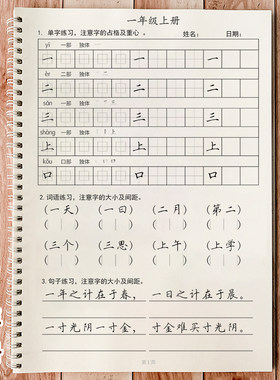 一年级上册
1. 单字练习，注意字的占格及重心。 姓名： 日期：
yī 一部 独体 一
一 一
èr 二部 独体
二 二
sān 一部 独体
三 三
shàng 卜部 独体
上 上
kǒu 口部 独体
口 口
2. 词语练习，注意字的大小及间距。
(一天) (一日) (二月) (第二)
(三个) (三思) (上午) (上学)
3. 句子练习，注意字的大小及间距。
一年之计在于春， 一日之计在于晨。
一寸光阴一寸金， 寸金难买寸光阴。
第1页